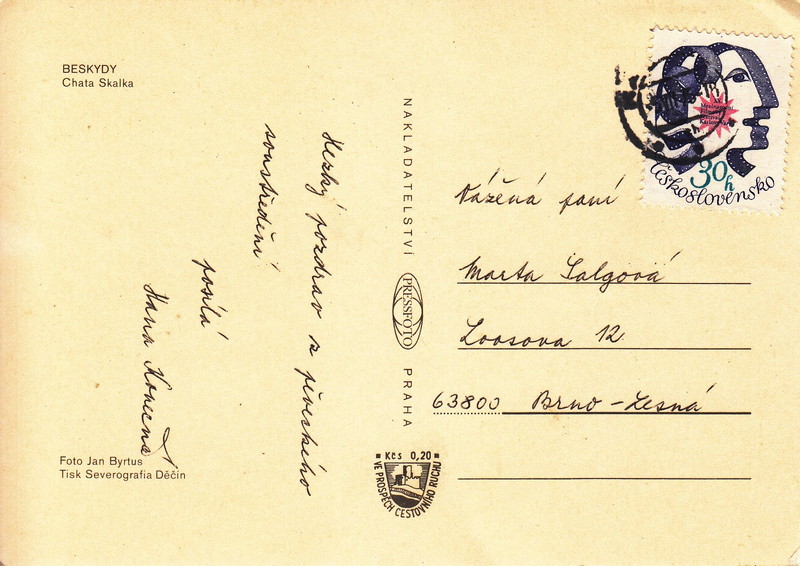 BESKYDY
Chata Skalka
Hezký pozdrav z pěveckého
soustředění
posílá
Hana Konečná
Foto Jan Byrtus
Tisk Severografia Děčín
NAKLADATELSTVÍ PRESSFOTO PRAHA
Kčs 0,20
VE PROSPĚCH CESTOVNÍHO RUCHU
30h
Československo
Vážená paní
Marta Salgová
Loosova 12
63800 Brno-Lesná